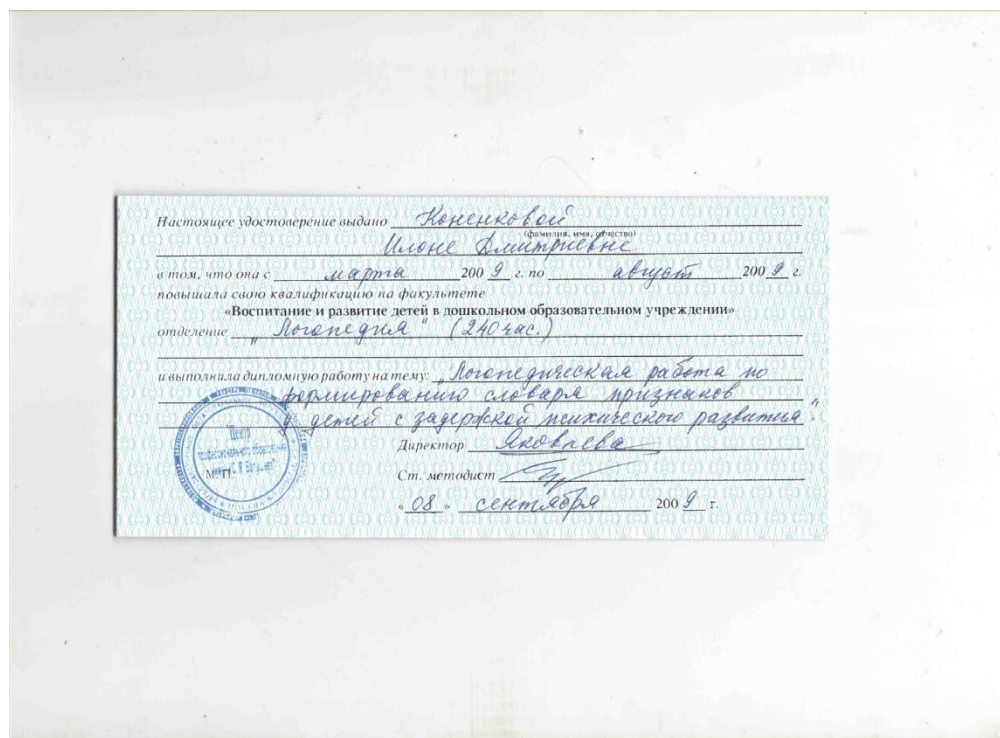 Настоящее удостоверение выдано Коненковой
(фамилия, имя, отчество)
Илоне Дмитриевне
в том, что она с марта 2009 г. по август 2009 г.
повышала свою квалификацию на факультете
«Воспитание и развитие детей в дошкольном образовательном учреждении»
отделение „Логопедия“ (240 час.)
и выполнила дипломную работу на тему: „Логопедическая работа по
формированию словаря признаков
у детей с задержкой психического развития“.
Директор Яковлева
Центр
М.П.
Ст. методист
«08» сентября 2009 г.